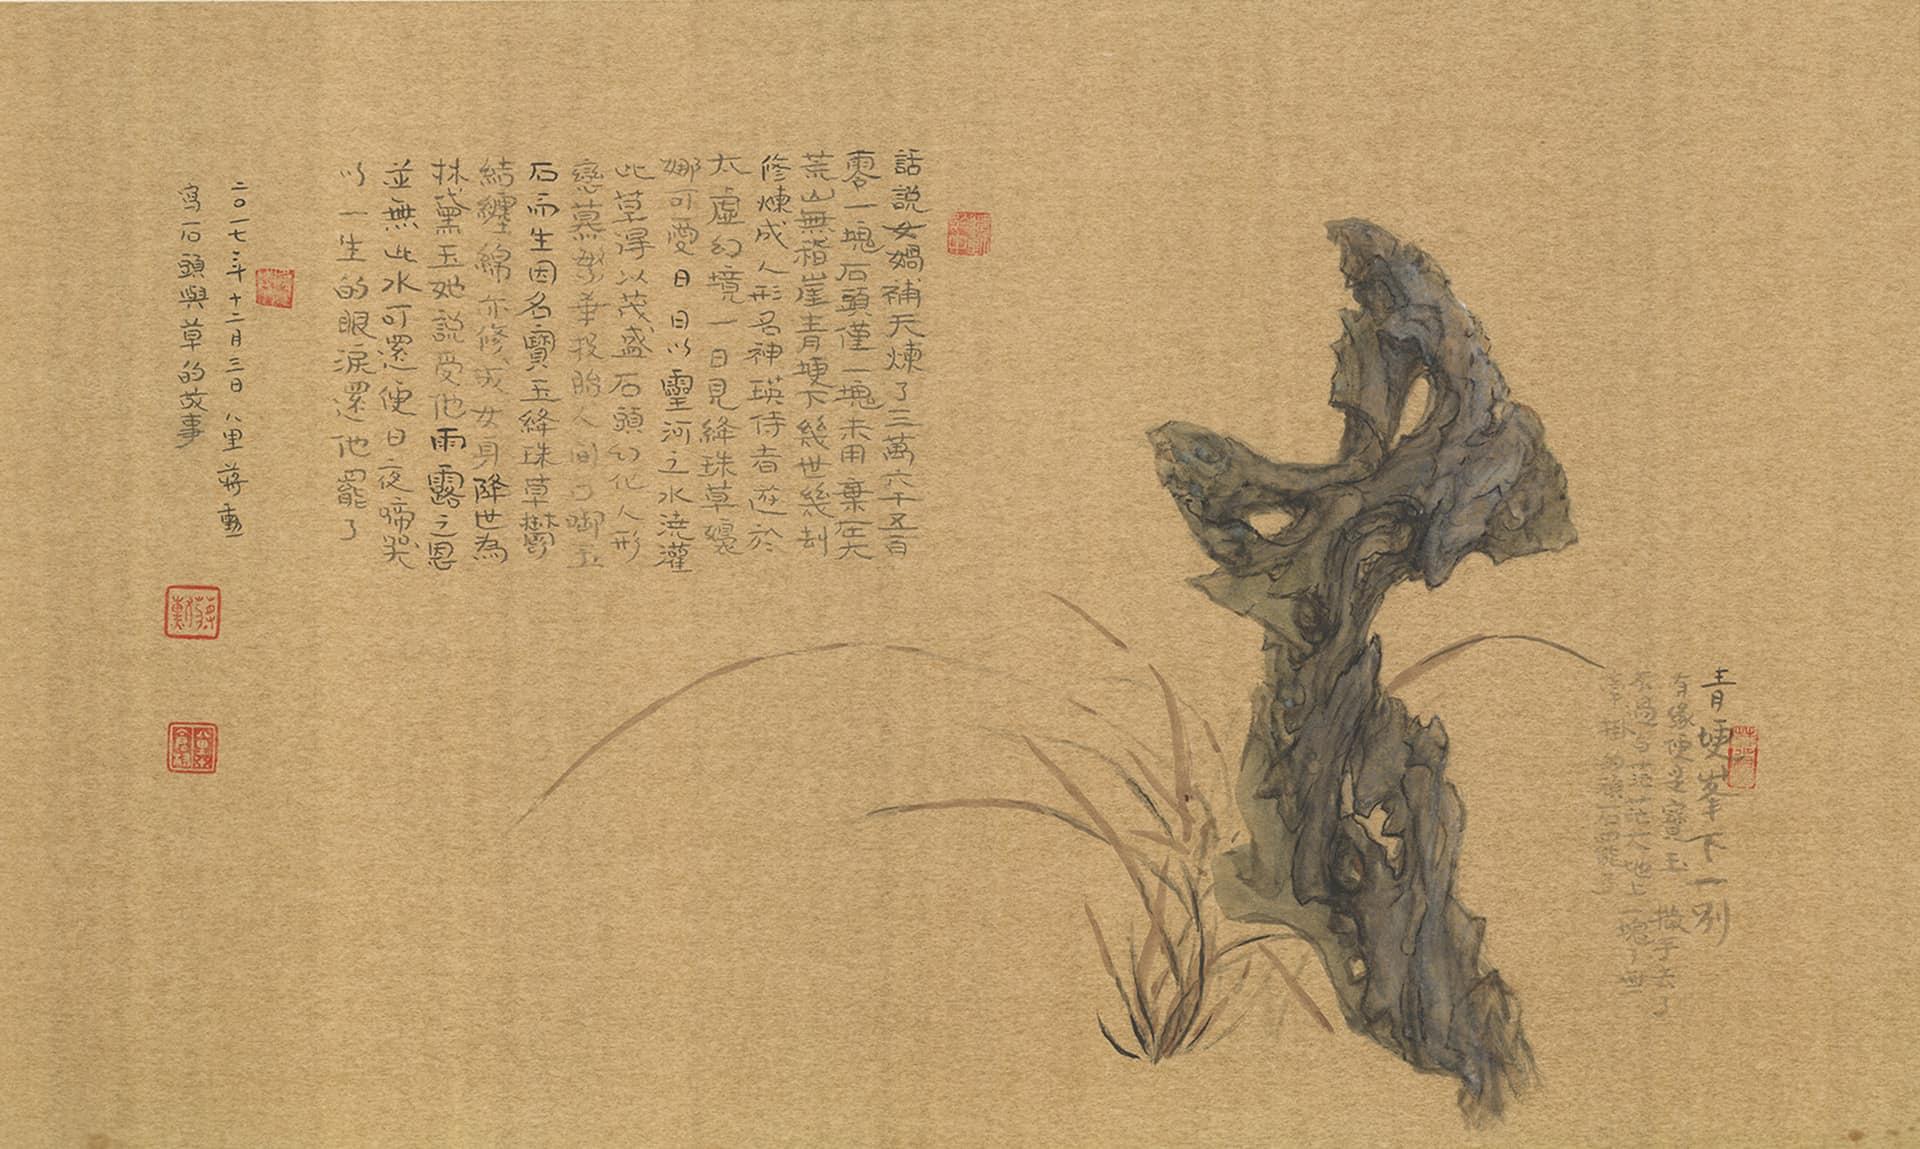 青埂峯下一別
有緣便是寶玉 撒手去了
不過白茫茫大地上一塊了無
牽掛的頑石罷了
話說女媧補天煉了三萬六千五百
零一塊石頭僅一塊未用棄在大
荒山無稽崖青埂下幾世幾刼
修煉成人形名神瑛侍者遊於
太虛幻境一日見絳珠草嬝
娜可愛日日以靈河之水澆灌
此草得以茂盛石頭幻化人形
戀慕繁華投胎人間口啣玉
石而生因名寶玉絳珠草鬱
結纏綿亦修成女身降世為
林黛玉她說受他雨露之恩
並無此水可還便日夜啼哭
以一生的眼淚還他罷了
二〇一七年十二月三日八里蔣勳
寫石頭與草的故事
蔣勳